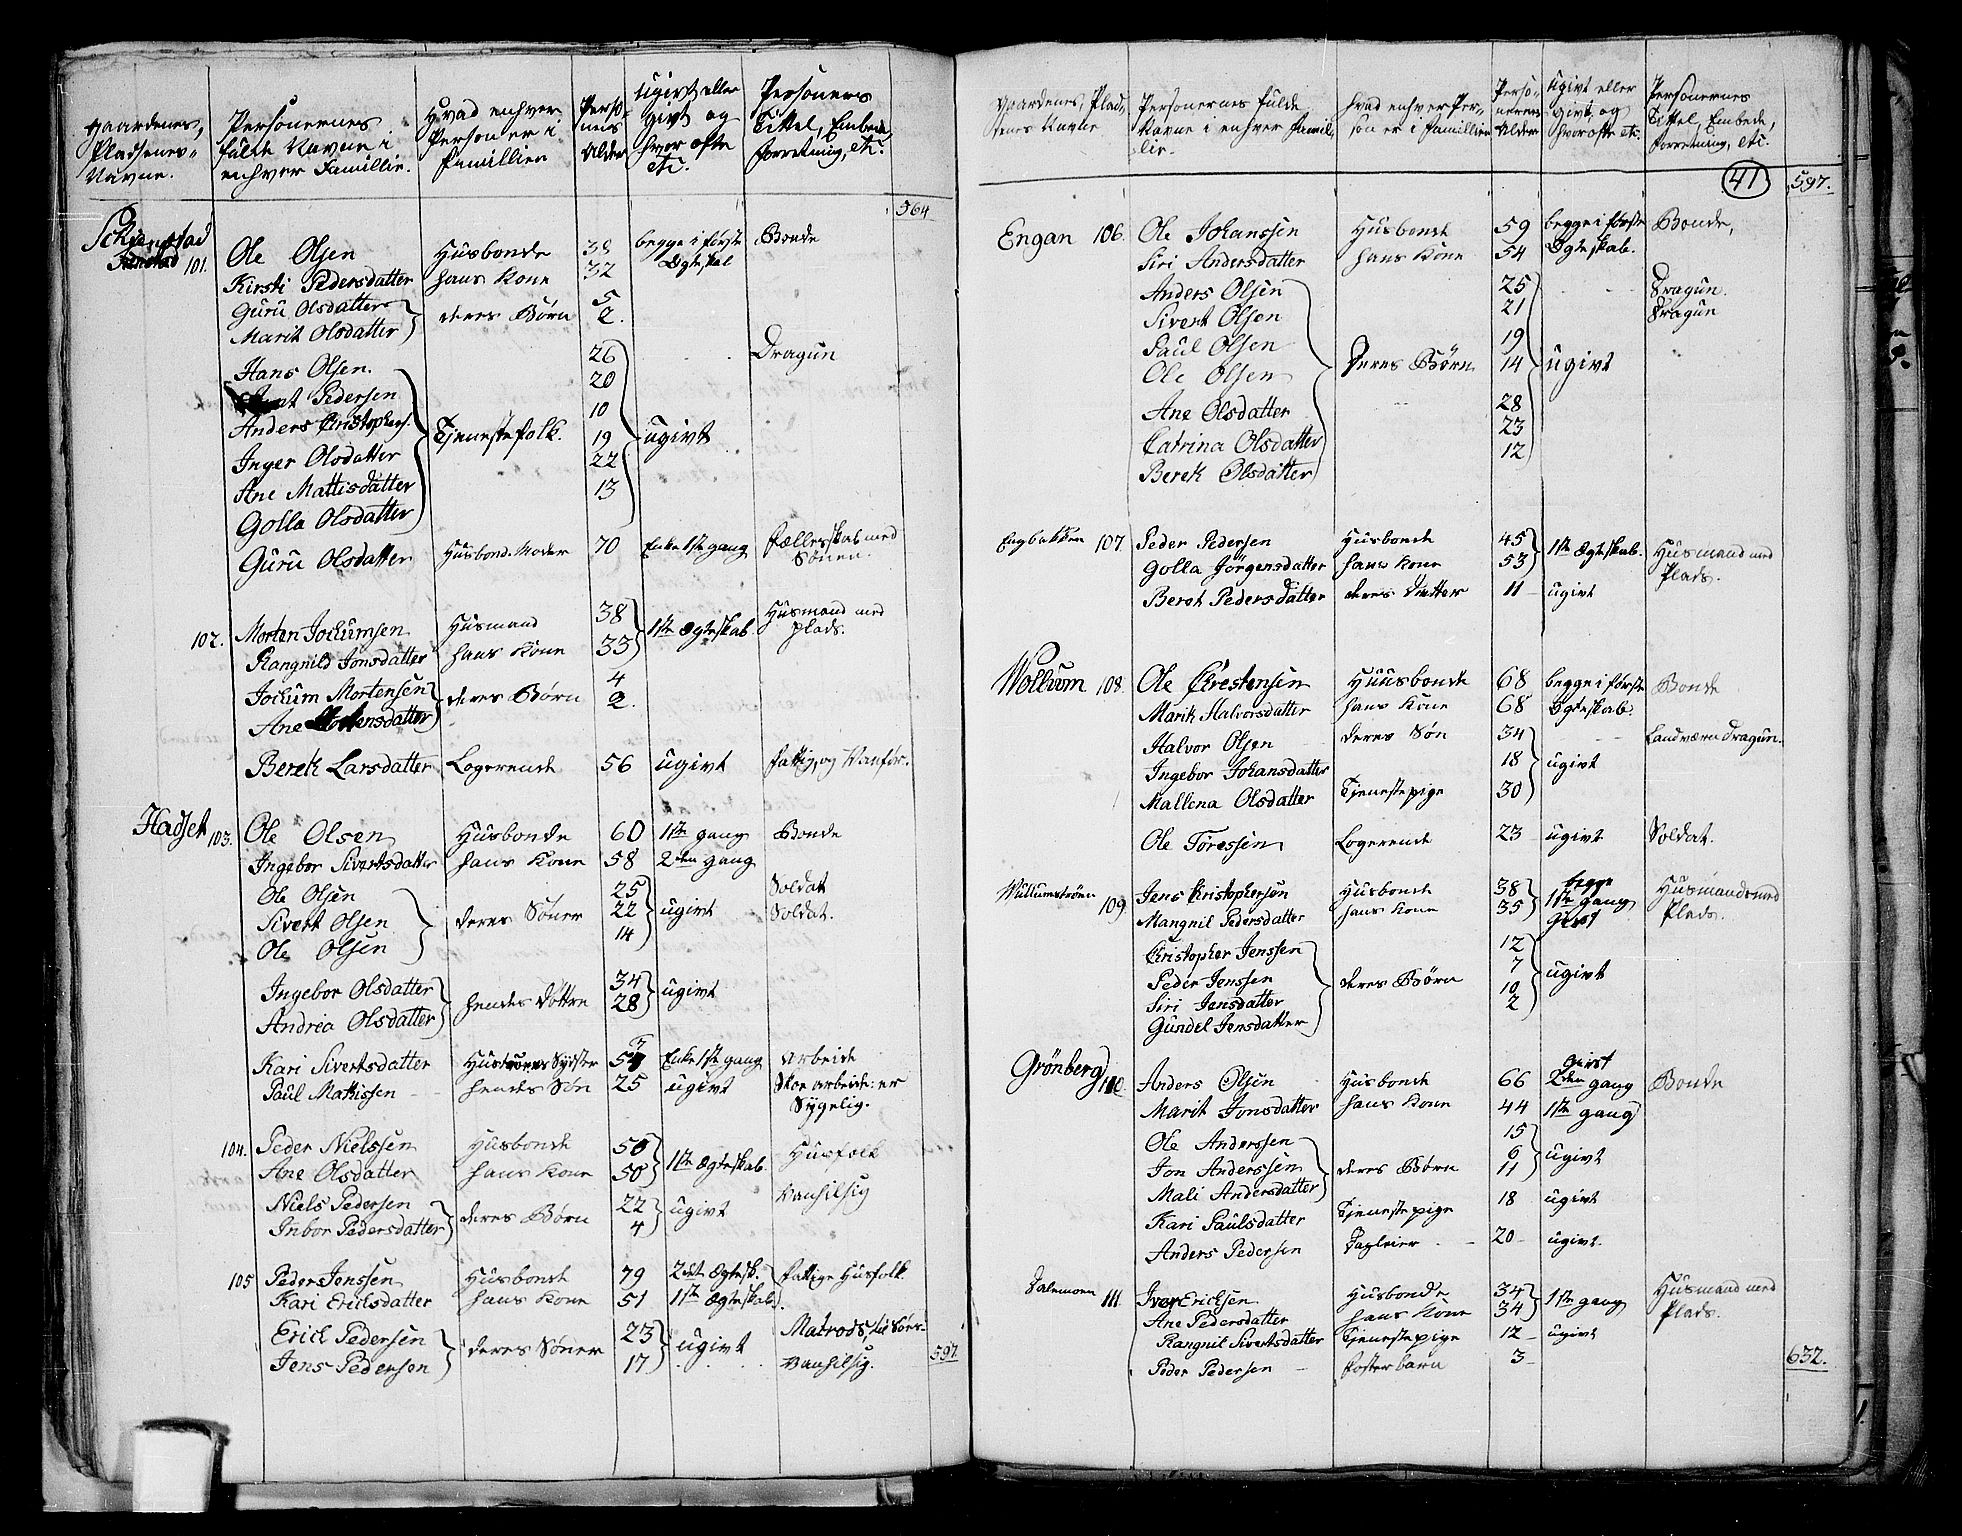 Gaardenes, Pladsenes Navne. Personernes fulde Navne i enhver Famillie. Hvad enhver Person er i Famillien Personernes Alder ugivt eller givt og hvor ofte etc. Personernes Tittel, Embede, forretning, etc.
564
101. Ole Olsen Husbonde 38 begge i første Ægteskab Bonde
Kirsti Pedersdatter hans Kone 32
Guru Olsdatter deres Børn 5
Marit Olsdatter 2.
Hans Olsen. Tjenestefolk. 26 ugivt Dragun
Pedersen 20
Anders Christophers. 10
Inger Olsdatter 19
Ane Mattisdatter 22
Golla Olsdatter 13
Guru Olsdatter Husbond. Moder 70 Enke 1ste gang fællesskab med Sønen.
102. Morten Jochumsen Husmand 38 1ste Ægteskab. Husmand med plads.
Rangnild Jonsdatter hans Kone 33
Jochum Mortensen deres Børn 4
Ane Mortensdatter 2.
Berek Larsdatter Logerende 56 ugivt fattig, og Vanfør.
Hadset 103. Ole Olsen Husbonde 60 1ste gang Bonde
Ingebor Sivertsdatter hans Kone 58 2den gang
Ole Olsen deres Søner 25 ugivt Soldat
Sivert Olsen 22 Soldat.
Ole Olsen 14
Ingebor Olsdatter hendes Døttre 34 ugivt
Andrea Olsdatter 28
Kari Sivertsdatter Enke 1ste gang Arbeide
Paul Mathissen hendes Søn 25 ugivt Skoe arbeide: er Sygelig.
104. Peder Nielssen Husbonde 50 1ste Ægteskab. Husfolk
Ane Olsdatter hans Kone 50
Niels Pedersen deres Børn 22 ugivt Vanhilsig
Inbor Pedersdatter 4
105 Peder Jenssen Husbonde 79 2det Ægtesk. fattige Husfolk.
Kari Ericksdatter hans Kone 51 1ste Ægteskab.
Erich Pedersen deres Søner 23 ugivt Matrods,
Jens Pedersen 17 Vanhilsig.
597.
Gaardenes, Pladsenes Navne Personernes fulde Navne i enhver Famillie. hvad enhver Person er i famillien Personernes Alder ugivt eller givt, og hvor ofte etc. Personernes Tittel, Embede, forretning, etc.
41 597.
Engan 106. Ole Johanssen Husbonde 59 begge i første Ægteskab. Bonde,
Siri Andersdatter hans Kone 54
Anders Olsen Deres Børn 25 ugivt Dragun.
Sivert Olsen 21 Dragun
Paul Olsen 19
Ole Olsen 14
Ane Olsdatter 28
Catrina Olsdatter 23
Berek Olsdatter 12
Engbakken 107. Peder Pedersen Husbonde 45 1ste Ægteskab. Husmand med Plads.
Golla Jörgensdatter hans Kone 53
Beret Pedersdatter deres Datter 11 ugivt
Wollum 108. Ole Christensen Huusbonde 68 begge i første Ægteskab. Bonde
Marik Halvorsdatter hans Kone 68
Halvor Olsen deres Søn 34 Landværn Dragun.
Ingebor Johansdatter 18 ugivt
Mallena Olsdatter Tjenestepige 30
Ole Toressen Logerende 23 ugivt Soldat.
Wullumstrøen 109 Jens Christophersen Husbonde 38 begge 1ste gang givt Husmand med Plads.
Mangnil Pedersdatter hans Kone 35
Christopher Jenssen deres Børn 12 ugivt
Peder Jenssen 7
Siri Jensdatter 10
Gundel Jensdatter 2
Grönberg 110. Anders Olsen Husbonde 66 givt 2den gang Bonde
Marit Jonsdatter hans Kone 44 1ste gang
Ole Anderssen deres Børn 15 ugivt
Jon Anderssen 6
Mali Andersdatter 11
Kari Paulsdatter Tjenestepige 18 ugivt
Anders Pedersen 20 ugivt.
Dalemoen 111. Iver Ericksen Husbonde 34 1ste gang Husmand med Plads.
Ane Pedersdatter hans Kone 34
Rangnil Sivertsdatter Tjenestepige 12 ugivt
Peder Pedersen fosterbarn 3
632.